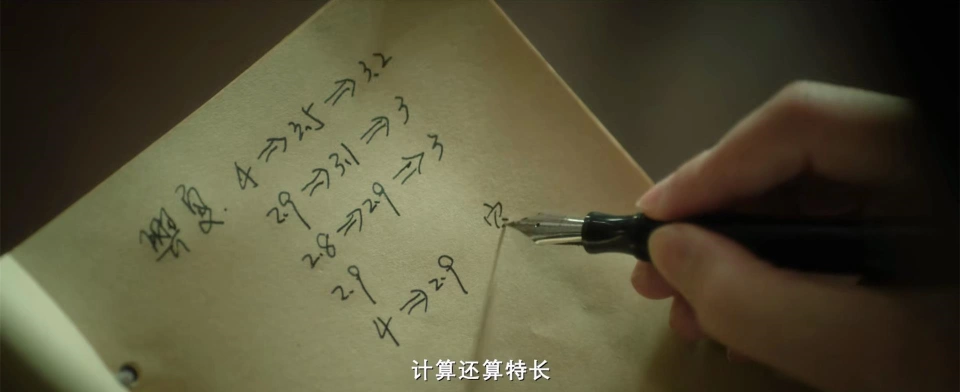 翠夏. 4⇒3.5⇒3.2
2.9⇒3.1⇒3
2.8⇒2.9⇒3
2.9
4⇒2.9
计算还算特长